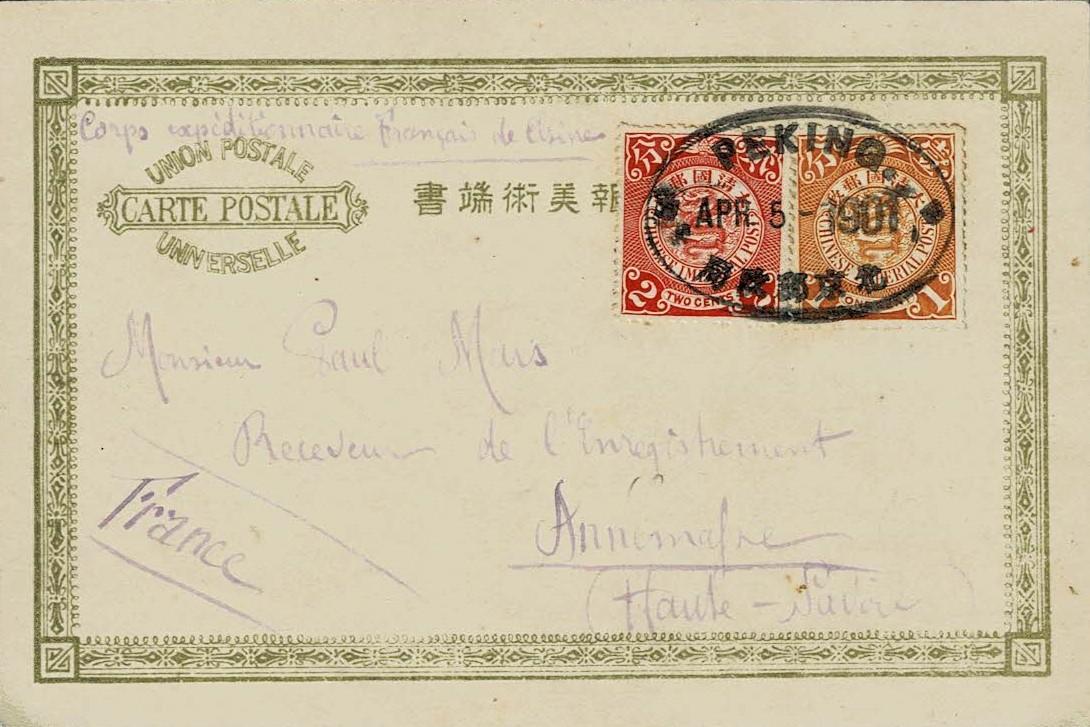 Corps expéditionnaire Français de Chine
UNION POSTALE
CARTE POSTALE
UNIVERSELLE
書端術美報
PEKING
APR 5 - 1901
北京郵政局
分
大清國郵政
CHINESE IMPERIAL POST
2 TWO CENTS
大清國郵政
CHINESE IMPERIAL POST
1
Monsieur Paul Mars
Receveur de l'Enregistrement
France
Annemasse
(Haute-Savoie)